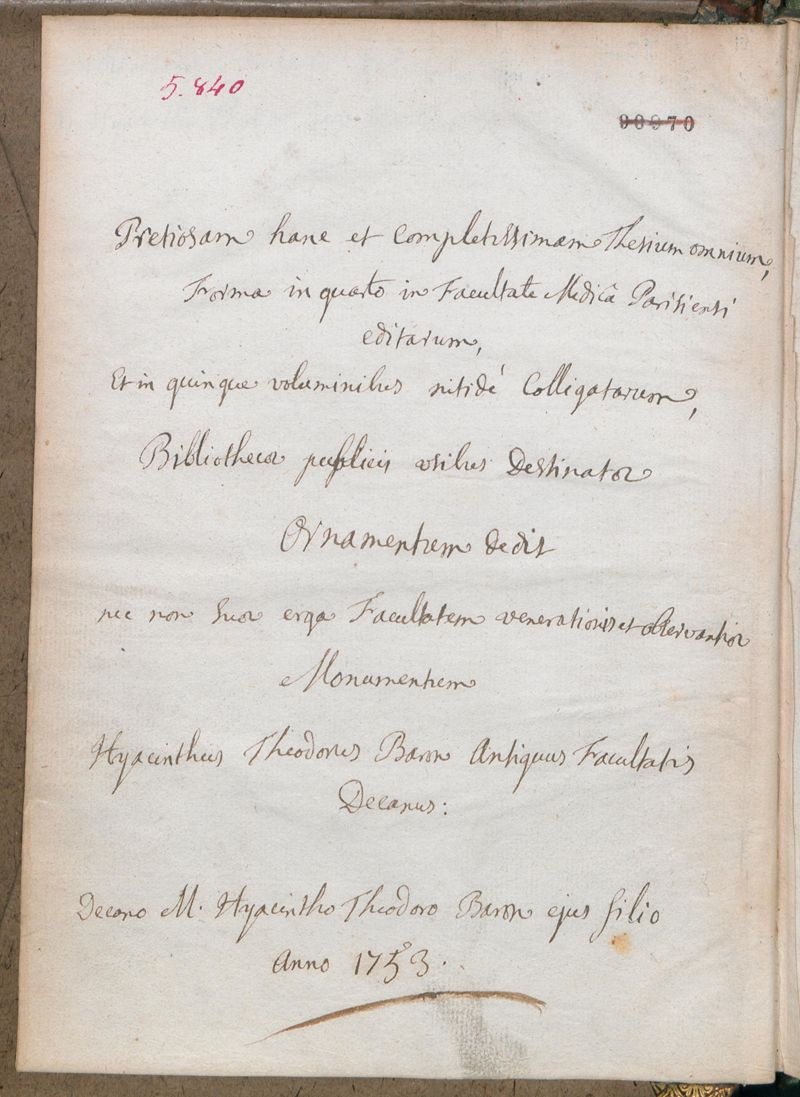 5.840
90970
Pretiosam hanc et completissimam Thesium omnium,
Forma in quarto in Facultate Medicâ Parisiensi
editarum,
Et in quinque voluminibus nitidé Colligatarum,
Bibliothecæ publicis usibus Destinatæ
Ornamentum dedit
nec non suæ erga Facultatem venerationis et observantiæ
Monumentum
Hyacinthus Theodorus Baron Antiquus Facultatis
Decanus:
Decano M. Hyacintho Theodoro Baron ejus filio
Anno 1753°.